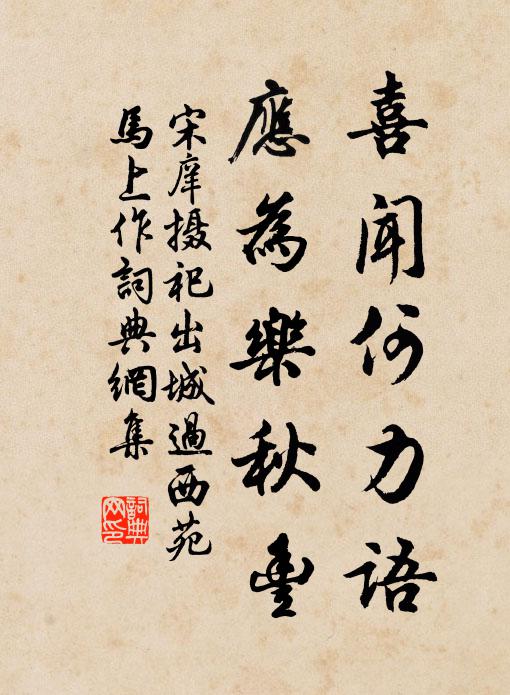 喜闻何力語
應為樂秋豊
宋庠摄祀出城過西苑
馬上作詞典網集
詞典網印